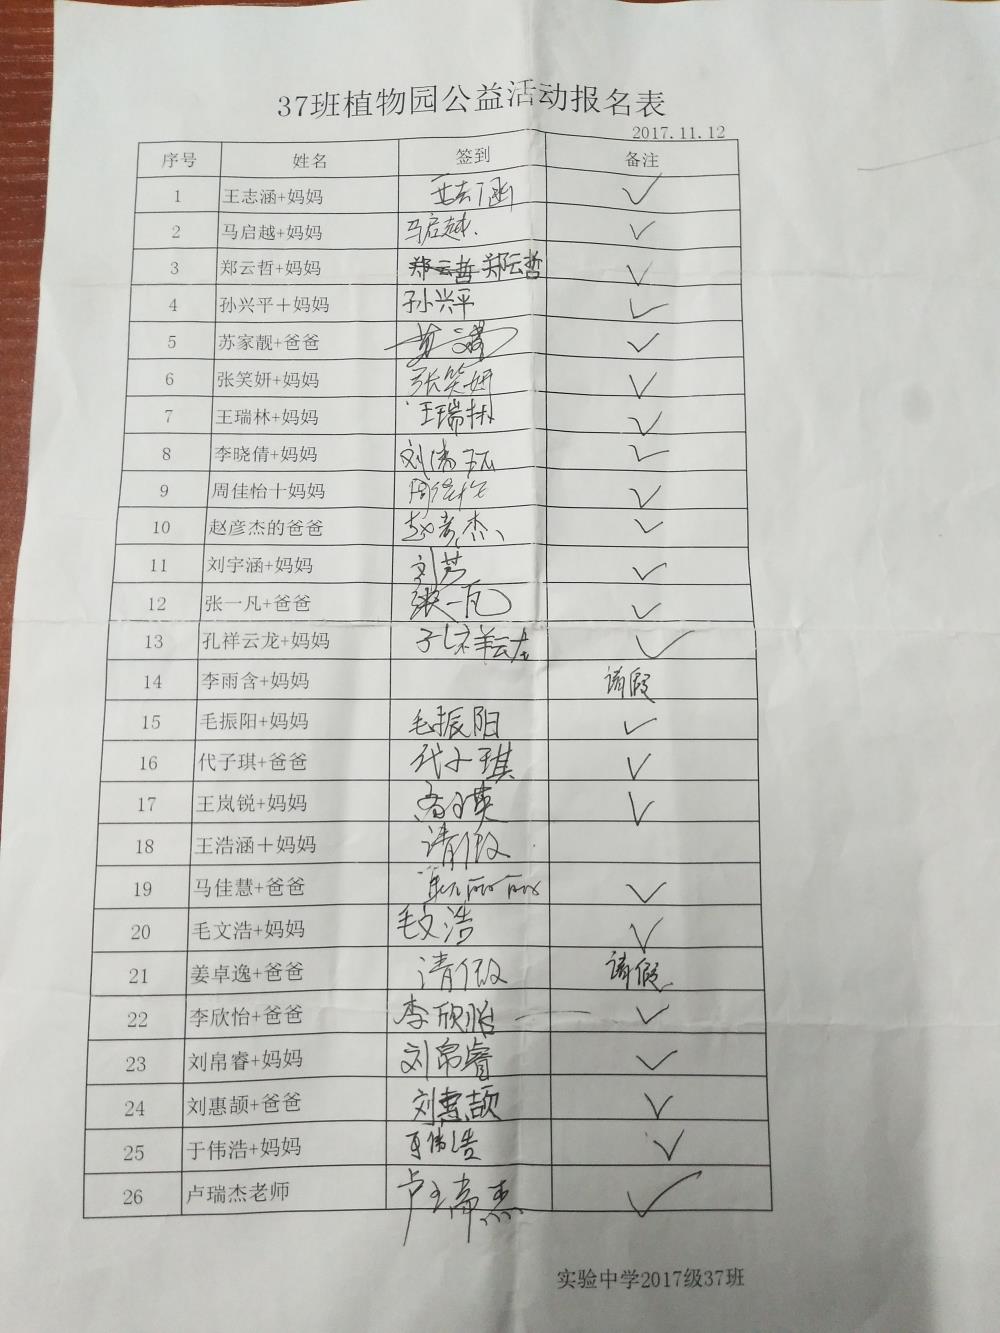 37班植物园公益活动报名表
2017.11.12
序号 姓名 签到 备注
1 王志涵+妈妈 ✓
2 马启越+妈妈 马启越. ✓
3 郑云哲+妈妈 郑云哲 郑云哲 ✓
4 孙兴平+妈妈 孙兴平 ✓
5 苏家靓+爸爸 ✓
6 张笑妍+妈妈 张笑妍 ✓
7 王瑞林+妈妈 王瑞林 ✓
8 李晓倩+妈妈 ✓
9 周佳怡十妈妈 周佳怡 ✓
10 赵彦杰的爸爸 赵彦杰 ✓
11 刘宇涵+妈妈 刘芳 ✓
12 张一凡+爸爸 张一凡 ✓
13 孔祥云龙+妈妈 孔祥云龙 ✓
14 李雨含+妈妈 请假
15 毛振阳+妈妈 毛振阳 ✓
16 代子琪+爸爸 代子琪 ✓
17 王岚锐+妈妈 ✓
18 王浩涵+妈妈 请假
19 马佳慧+爸爸 ✓
20 毛文浩+妈妈 毛文浩 ✓
21 姜卓逸+爸爸 请假 请假
22 李欣怡+爸爸 李欣怡 ✓
23 刘帛睿+妈妈 刘帛睿 ✓
24 刘惠颉+爸爸 刘惠颉 ✓
25 于伟浩+妈妈 于伟浩 ✓
26 卢瑞杰老师 卢瑞杰 ✓
实验中学2017级37班